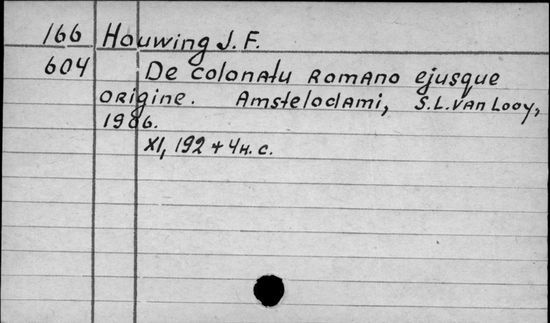 166 Houwing J. F.
604 De colonatu Romano ejusque
origine. Amstelodami, S.L. van Looy,
1906.
XI, 192 + 4 н. с.